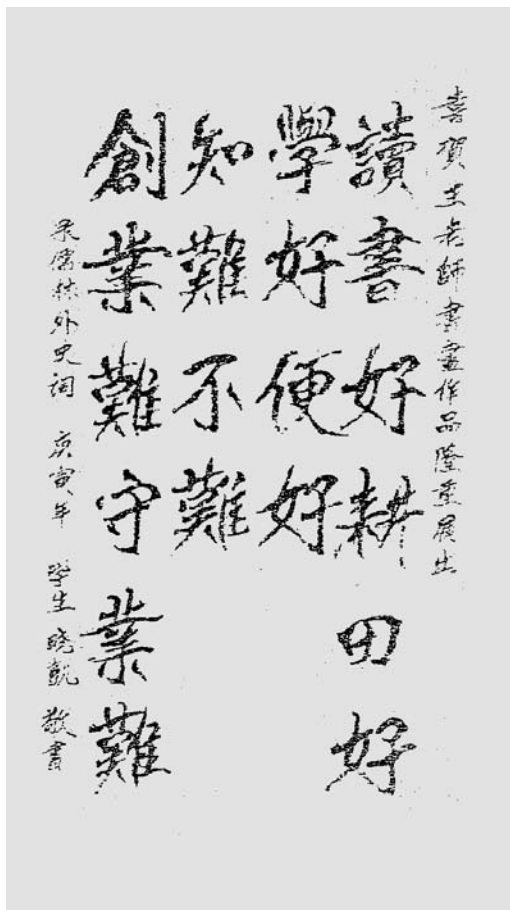 喜賀王老師書畫作品隆重展出
讀書好耕田好
學好便好
知難不難
創業難守業難
录儒林外史词 庚寅年 学生晓凱敬書